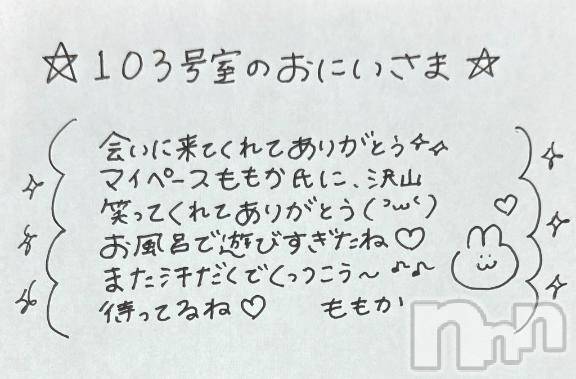 ☆103号室のおにいさま☆
会いに来てくれてありがとう✧✧
マイペースももか氏に、沢山
笑ってくれてありがとう( 'ω' )
お風呂で遊びすぎたね♡
また汗だくでくっつこう〜♪♪
待ってるね♡ ももか
nnn